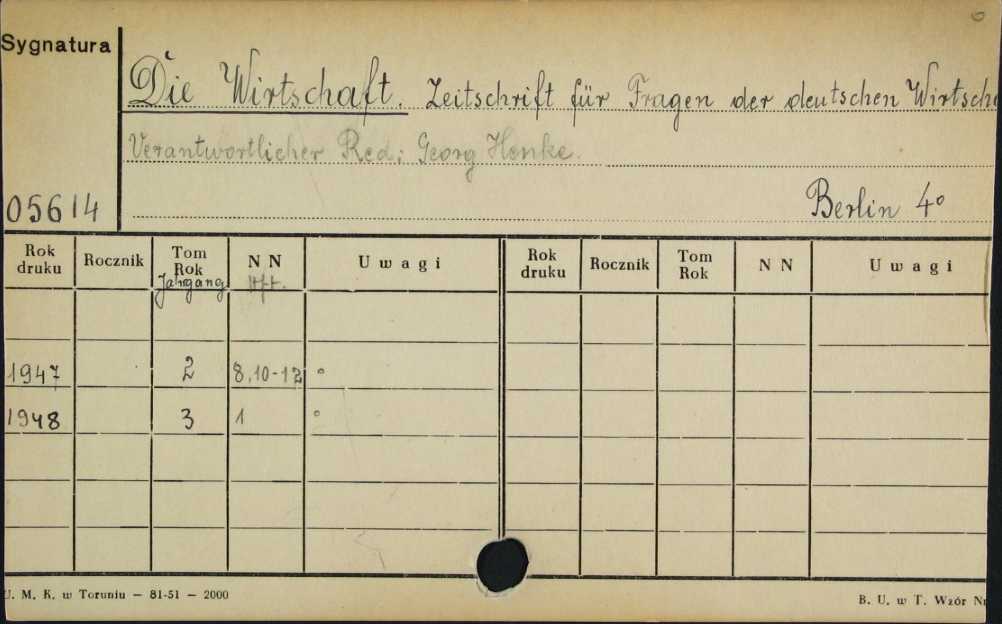 Sygnatura
Die Wirtschaft. Zeitschrift für Fragen der deutschen Wirtsch
Verantwortlicher Red.: Georg Henke.
05614
Berlin 4°
Rok druku Rocznik Tom Rok N N Uwagi Rok druku Rocznik Tom Rok N N Uwagi
Jahrgang Hft.
1947 2 8,10-12 °
1948 3 1 °
U. M. K. w Toruniu — 81-51 — 2000 B. U. w T. Wzór Nr